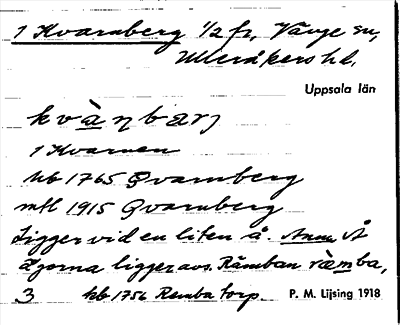 1 Kvarnberg 1/2 fr, Vänge sn,
Ulleråkers hd.
Uppsala län
kvànbarj
1 Kvarnen
kb 1765 Qvarnberg
mtl 1915 Qvarnberg
Ligger vid en liten å. Anm. Å
ägorna ligger avs. Rämban ràmba,
3 kb 1756 Remba torp. P. M. Lijsing 1918